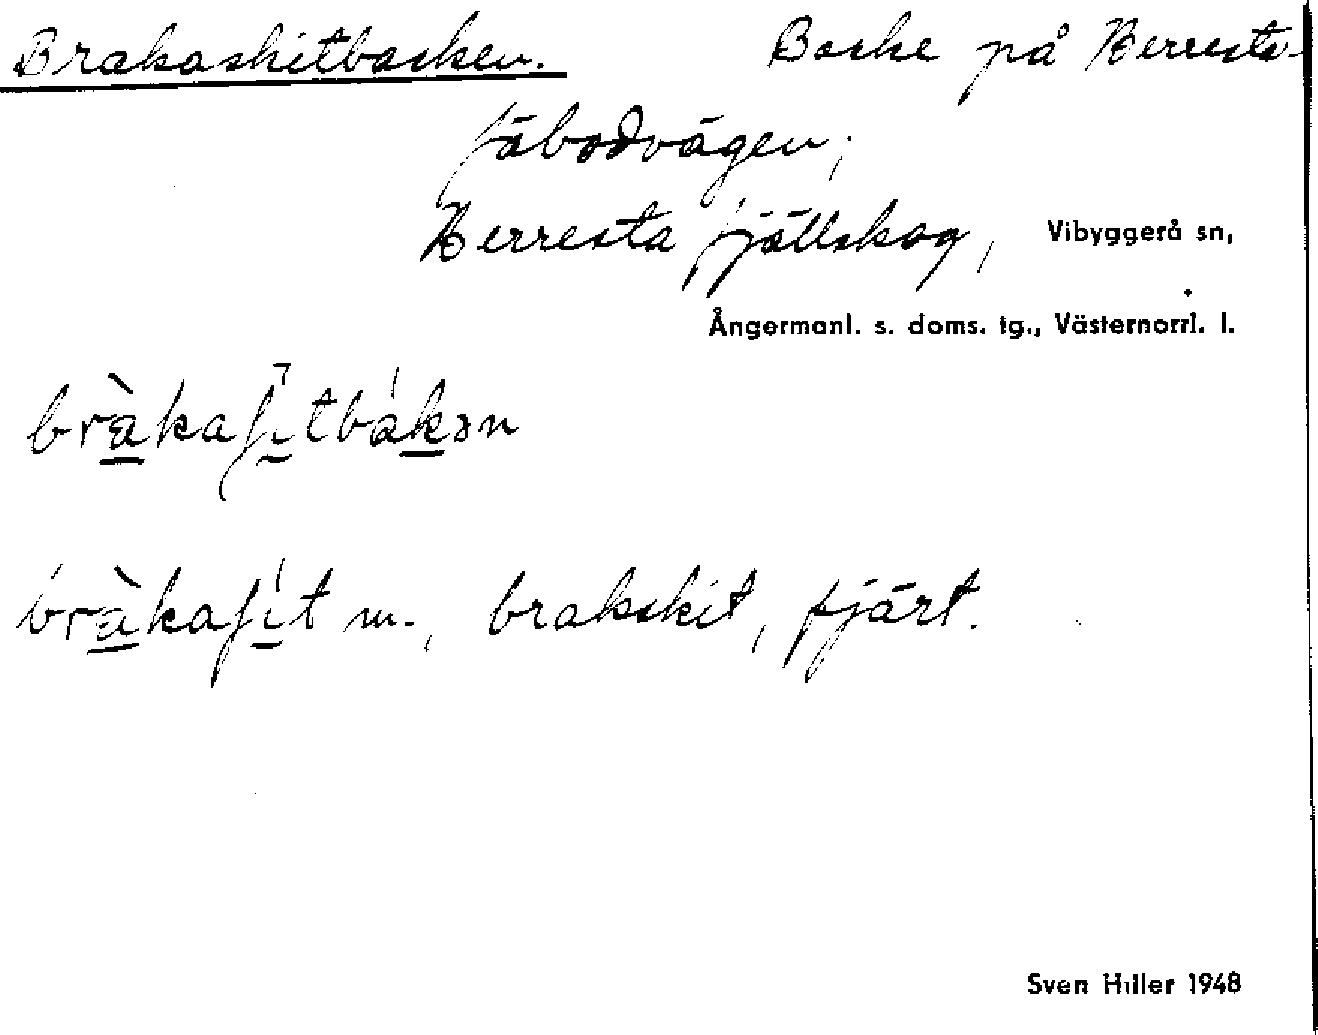 Brakaskitbacken. Backe på Herresta-
fäbodvägen,
Herresta fjällskog, Vibyggerå sn,
Ångermanl. s. doms. tg., Västernorrl. l.
bràkaʃi̠tbákən
bràkaʃi̠t m., brakskit, fjärt.
Sven Hiller 1948